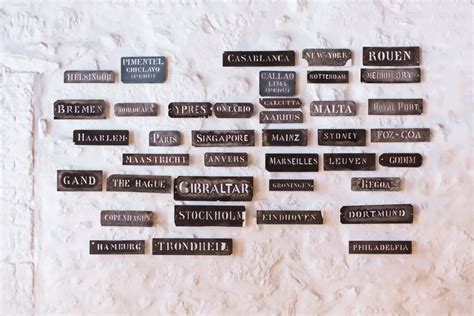 CASABLANCA
NEW-YORK
ROUEN
PIMENTEL
CHICLAYO
(PERU)
HELSINGOR
CALLAO
LIMA
(PERU)
ROTTERDAM
BREMEN
BORDEAUX
YPRES
ONTARIO
CALCUTTA
AARHUS
MALTA
ROYAL PORT
HAARLEM
PARIS
SINGAPORE
MAINZ
SYDNEY
FOZ-COA
MAASTRICHT
ANVERS
MARSEILLES
LEUVEN
GODIM
GAND
THE HAGUE
GIBRALTAR
GRONINGEN
REGOA
COPENHAGEN
STOCKHOLM
EINDHOVEN
DORTMUND
HAMBURG
TRONDHEIM
PHILADELFIA